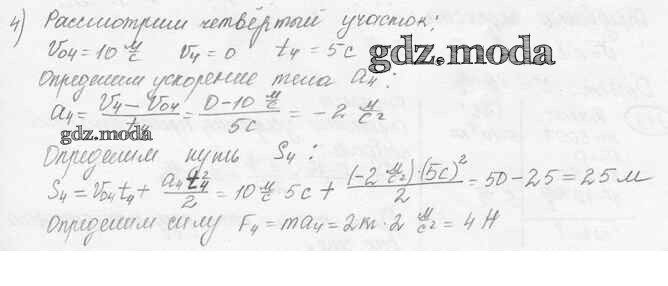 4) Рассмотрим четвёртый участок:
V₀₄ = 10 м/с V₄ = 0 t₄ = 5с
gdz.moda
Определим ускорение тела a₄:
a₄ = (V₄ – V₀₄)/t₄ = (0 – 10 м/с)/5с = – 2 м/с²
gdz.moda
Определим путь S₄:
S₄ = V₀₄t₄ + a₄t₄²/2 = 10 м/с · 5с + (-2 м/с²)·(5с)²/2 = 50 – 25 = 25 м
Определим силу F₄ = ma₄ = 2кг · 2 м/с² = 4 Н